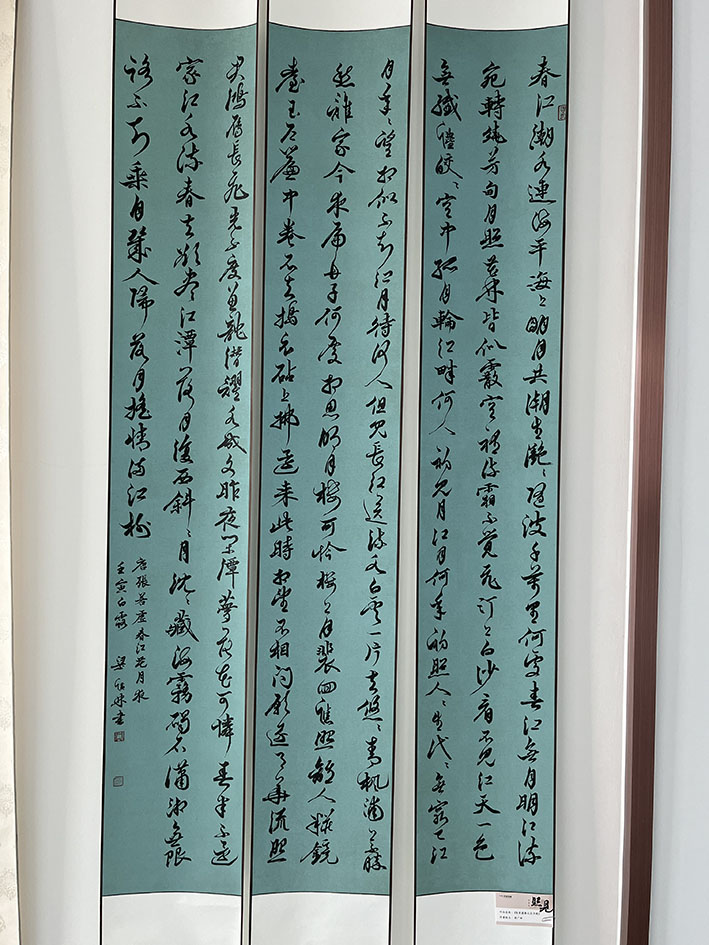 春江潮水連海平海上明月共潮生灩〻隨波千萬里何處春江無月明江流
宛轉繞芳甸月照花林皆似霰空裡流霜不覺飛汀上白沙看不見江天一色
無纖塵皎〻空中孤月輪江畔何人初見月江月何年初照人〻生代〻無窮已江
月年〻望相似不知江月待何人但見長江送流水白雲一片去悠〻青楓浦上不勝
愁誰家今夜扁舟子何處相思明月樓可憐樓上月裴回應照離人糚鏡
臺玉户簾中卷不去搗衣砧上拂還來此時相望不相聞願逐月華流照
君鴻雁長飛光不度魚龍潛躍水成文昨夜閑潭夢落花可憐春半不還
家江水流春去欲盡江潭落月復西斜〻月沈〻藏海霧碣石瀟湘無限
路不知乘月幾人歸落月搖情滿江樹
唐張若虛春江花月夜
壬寅白露 梁 書